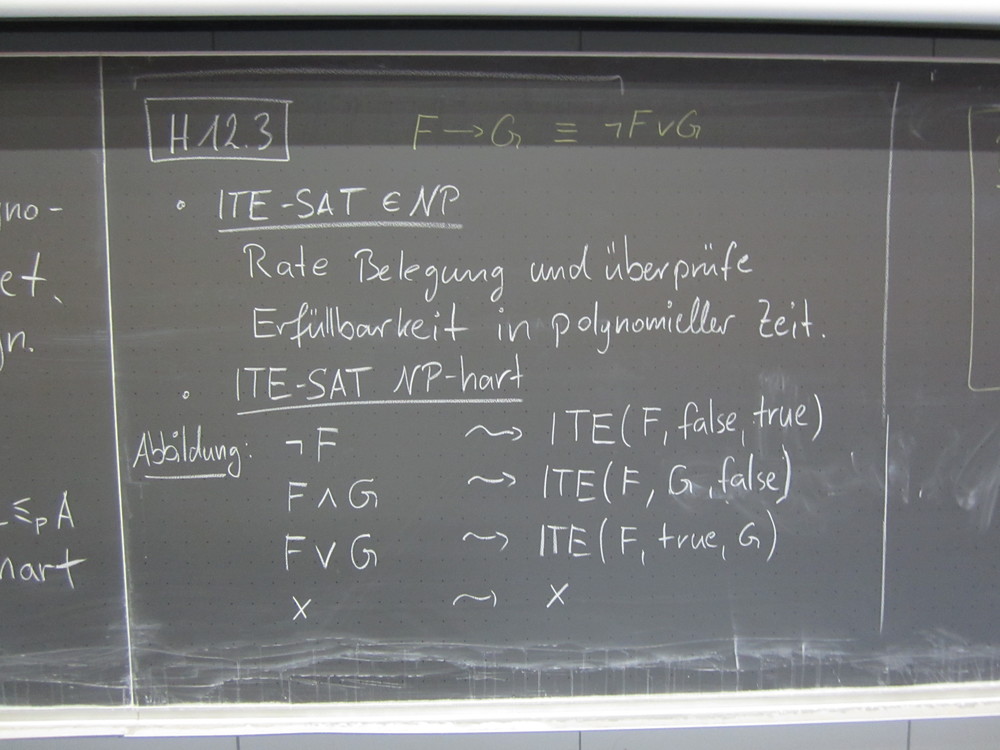 gno-
et.
gn.
≤p A
hart
H 12.3
F → G ≡ ¬F ∨ G
• ITE-SAT ∈ NP
Rate Belegung und überprüfe
Erfüllbarkeit in polynomieller Zeit.
• ITE-SAT NP-hart
Abbildung: ¬F ⤳ ITE(F, false, true)
F ∧ G ⤳ ITE(F, G, false)
F ∨ G ⤳ ITE(F, true, G)
x ⤳ x